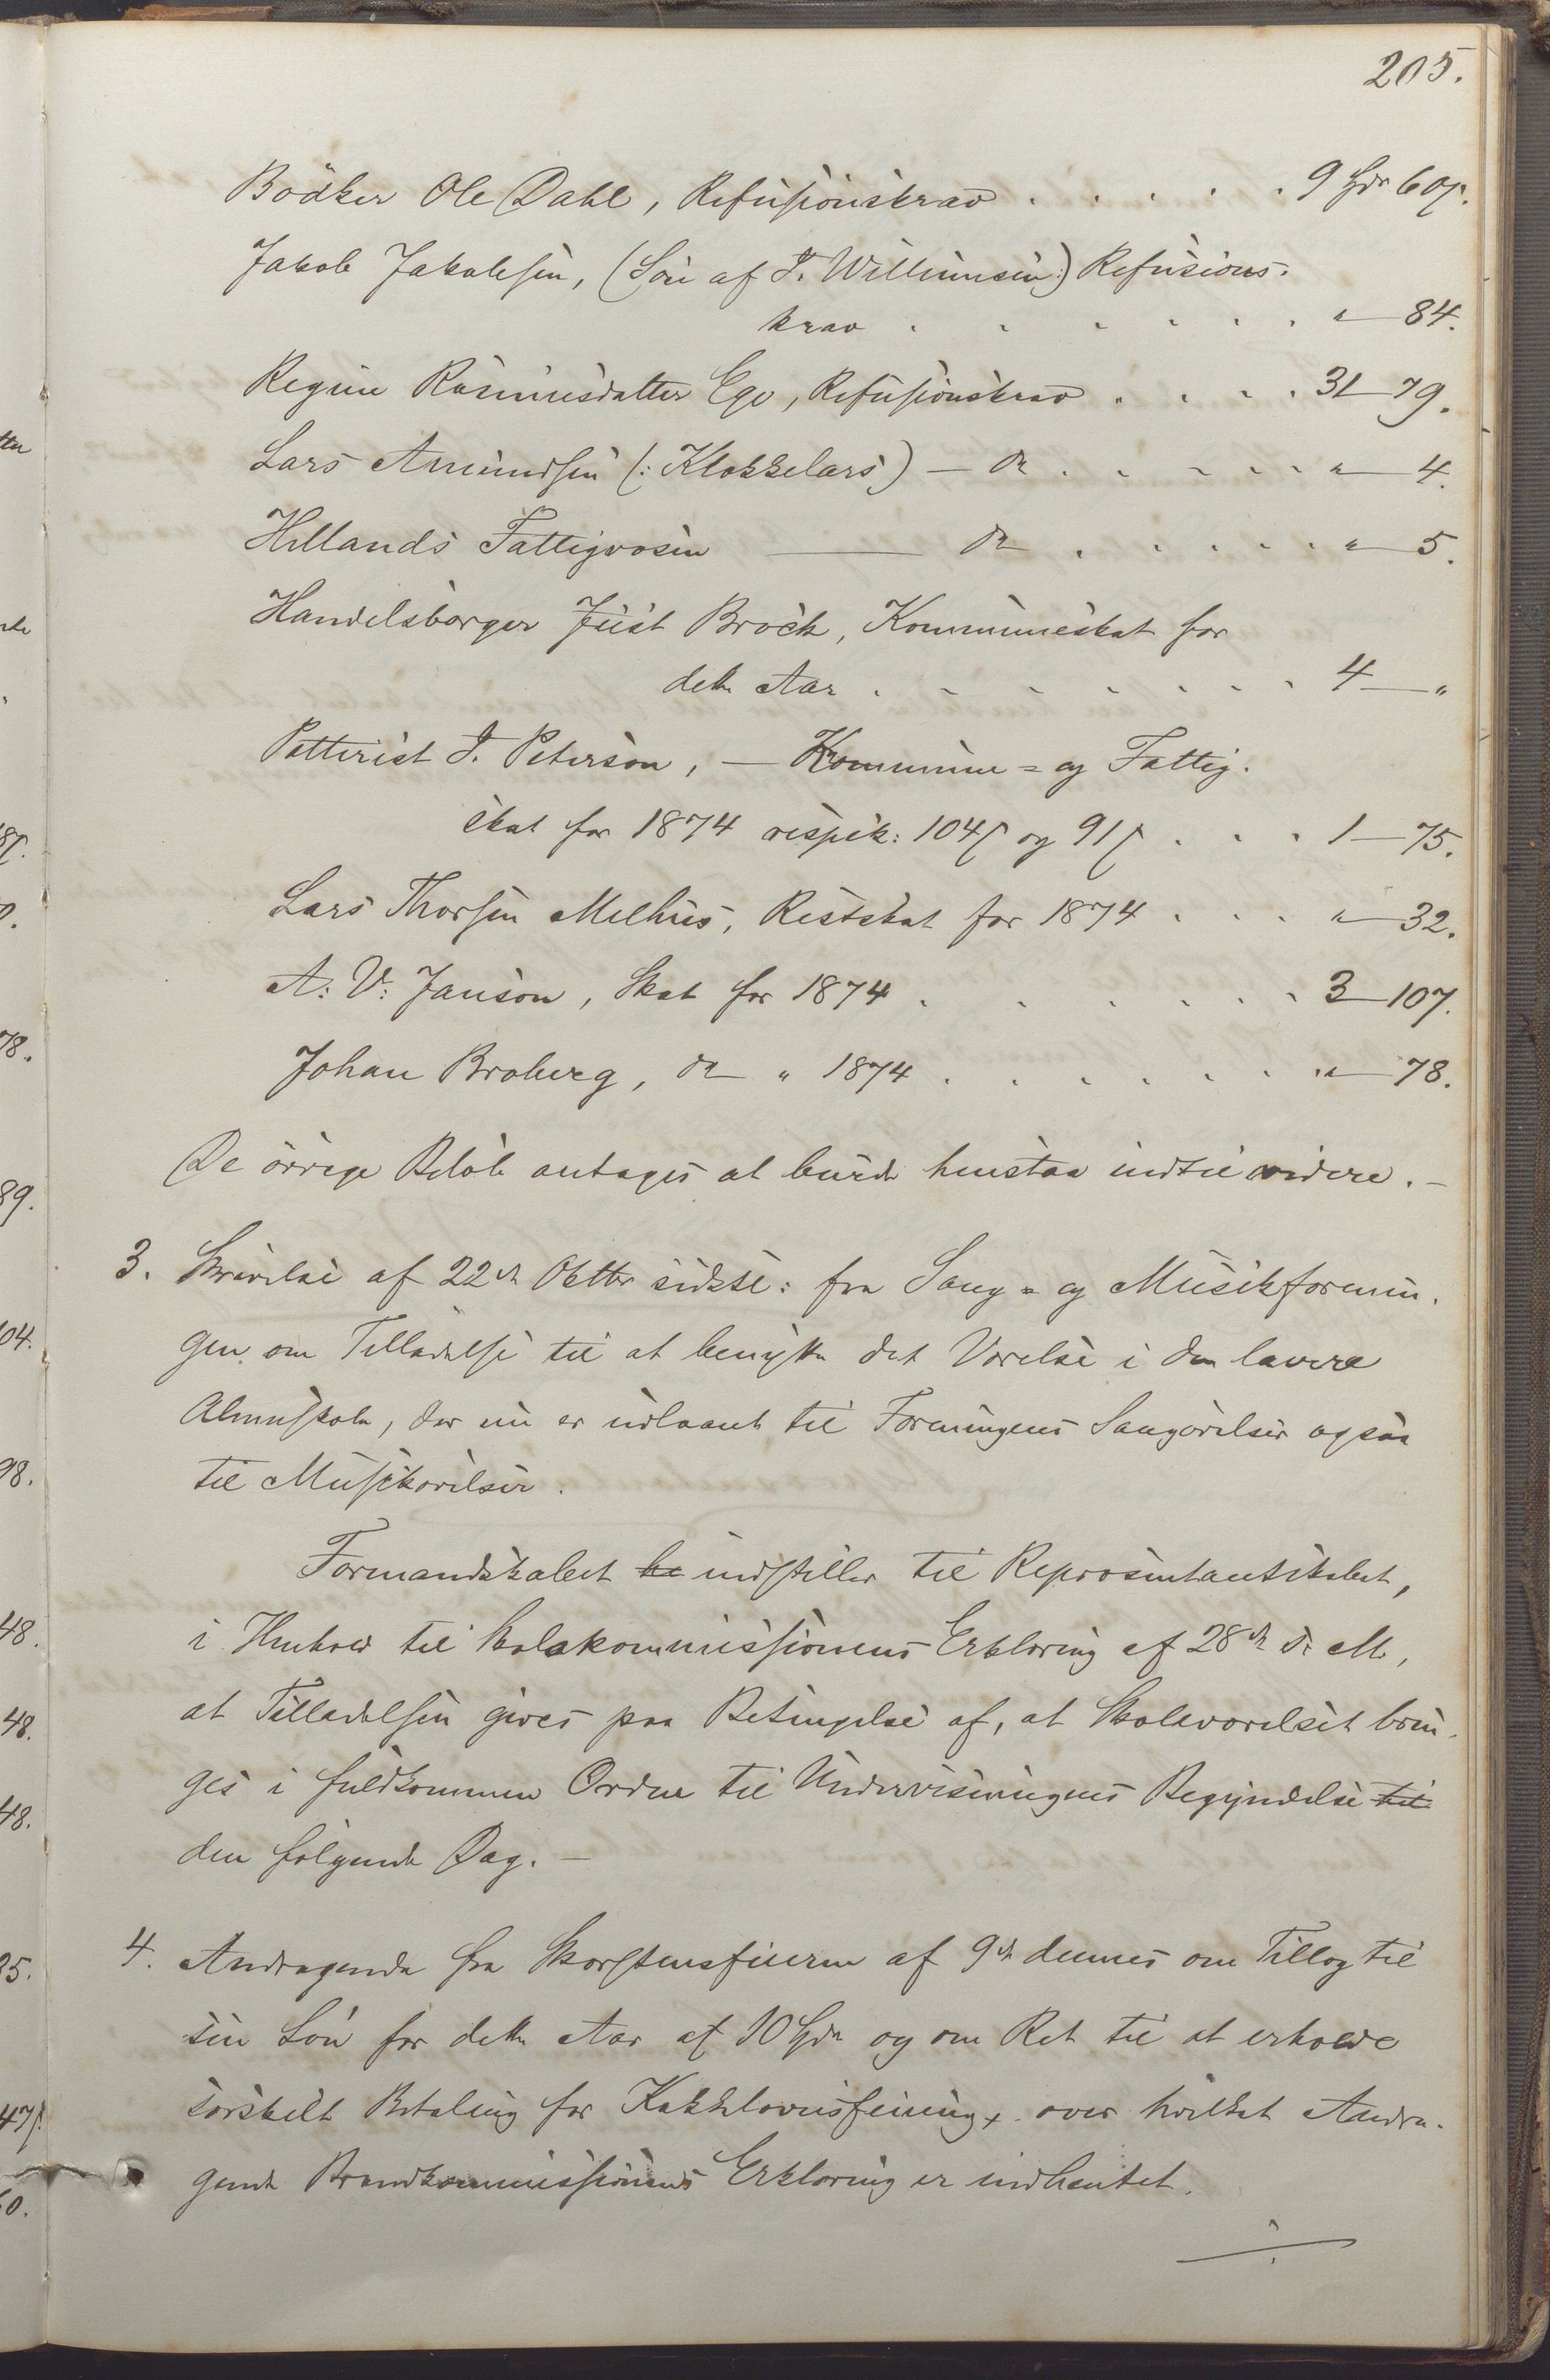 205.
Bödker Ole Dahl, Refusionskrav . . . . . 9 Spd 60 s.
Jakob Jakobsen, (Sön af T. Willumsen:) Refusions-
krav . . . . . . " — 84.
Regine Rasmusdatter Ege, Refusionskrav . . . . 31 — 79.
Lars Amundsen (: Klokkelars) — do . . . . . " — 4.
Hillands Fattigvæsen — do . . . . . " — 5.
Handelsborger Just Broch, Kommuneskat for
dette Aar . . . . . . . 4 — "
Potterist J. Peterson, — Kommune- og Fattig-
skat for 1874 respek: 104 s og 91 s . . . 1 — 75.
Lars Thorsen Melhus, Restskat for 1874 . . . " — 32.
A: V: Janson, Skat for 1874 . . . . . . 3 — 107.
Johan Broberg, do " 1874 . . . . . . " — 78.
De övrige Belöb antages at burde henstaa indtil videre. —
3. Skrivelse af 22de Oktbr sidstl: fra Sang- og Musikforenin-
gen om Tilladelse til at benytte det Værelse i den lavere
Almuskole, der nu er udlaant til Foreningens Sangövelser ogsaa
til Musikövelser.
Formandskabet be indstiller til Repræsentantskabet,
i Henhold til Skolekommissionens Erklæring af 28de d. M.,
at Tilladelsen gives paa Betingelse af, at Skoleværelset brin-
ges i fuldkommen Orden til Undervisningens Begyndelse til
den fölgende Dag. —
4. Andragende fra Skorstensfeieren af 9de dennes om Tillæg til
sin Lön for dette Aar af 10 Spd og om Ret til at erholde
særskilt Betaling for Kakkelovnsfeining, over hvilket Andra-
gende Brandkommissionens Erklæring er indhentet.